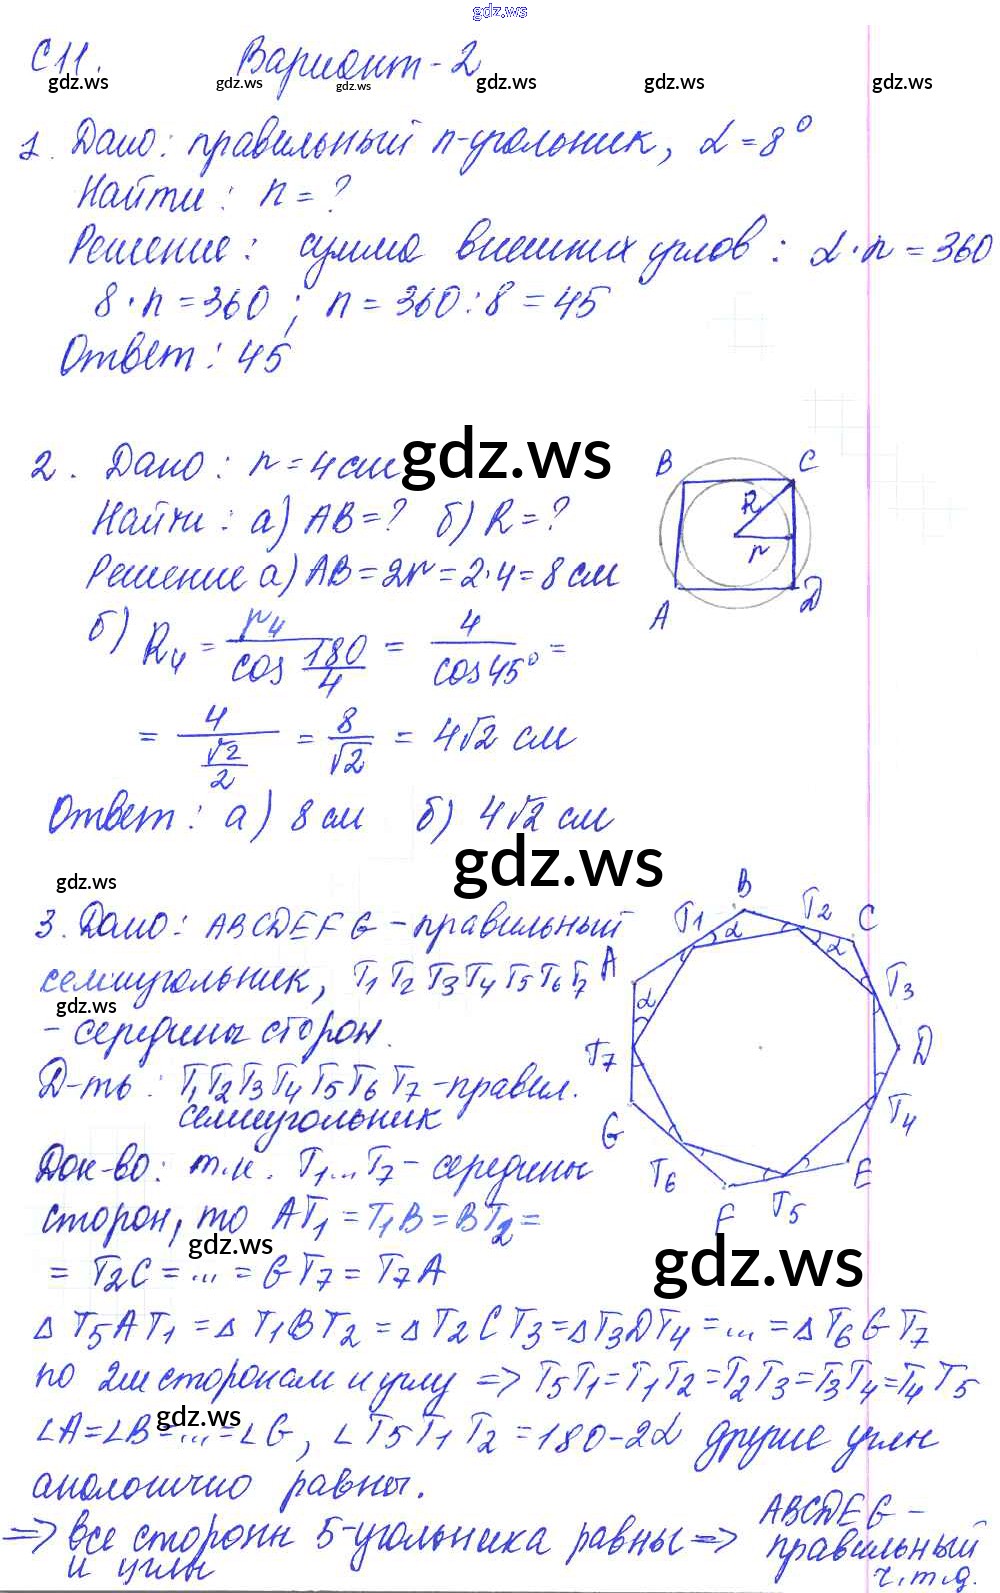 gdz.ws
С11. Вариант-2
gdz.ws gdz.ws gdz.ws gdz.ws gdz.ws gdz.ws
1. Дано: правильный n-угольник, α = 8°
Найти: n = ?
Решение: сумма внешних углов: α · n = 360
8 · n = 360; n = 360 : 8 = 45
Ответ: 45
2. Дано: r = 4 см
gdz.ws
Найти: а) AB = ? б) R = ?
Решение а) AB = 2r = 2·4 = 8 см
б) R₄ = r₄ / cos 180/4 = 4 / cos 45° =
= 4 / (√2/2) = 8/√2 = 4√2 см
Ответ: а) 8 см б) 4√2 см
B C
R
r
A D
gdz.ws
gdz.ws
3. Дано: ABCDEFG - правильный
семиугольник, T1 T2 T3 T4 T5 T6 T7
gdz.ws
- середины сторон.
Д-ть: T1 T2 T3 T4 T5 T6 T7 - правил.
семиугольник
Док-во: т.к. T1...T7 - середины
сторон, то AT1 = T1B = BT2 =
gdz.ws
= T2C = ... = GT7 = T7A
B
T1 T2 C
α α
A
α T3
T7 D
G T4
T6 E
F T5
gdz.ws
Δ T5AT1 = Δ T1BT2 = Δ T2CT3 = Δ T3DT4 = ... = Δ T6GT7
по 2м сторонам и углу => T5T1 = T1T2 = T2T3 = T3T4 = T4T5
gdz.ws
∠A = ∠B = ... = ∠G, ∠T5T1T2 = 180 - 2α другие углы
аналогично равны.
=> все стороны 5-угольника равны => ABCDEG -
и углы правильный
ч.т.д.